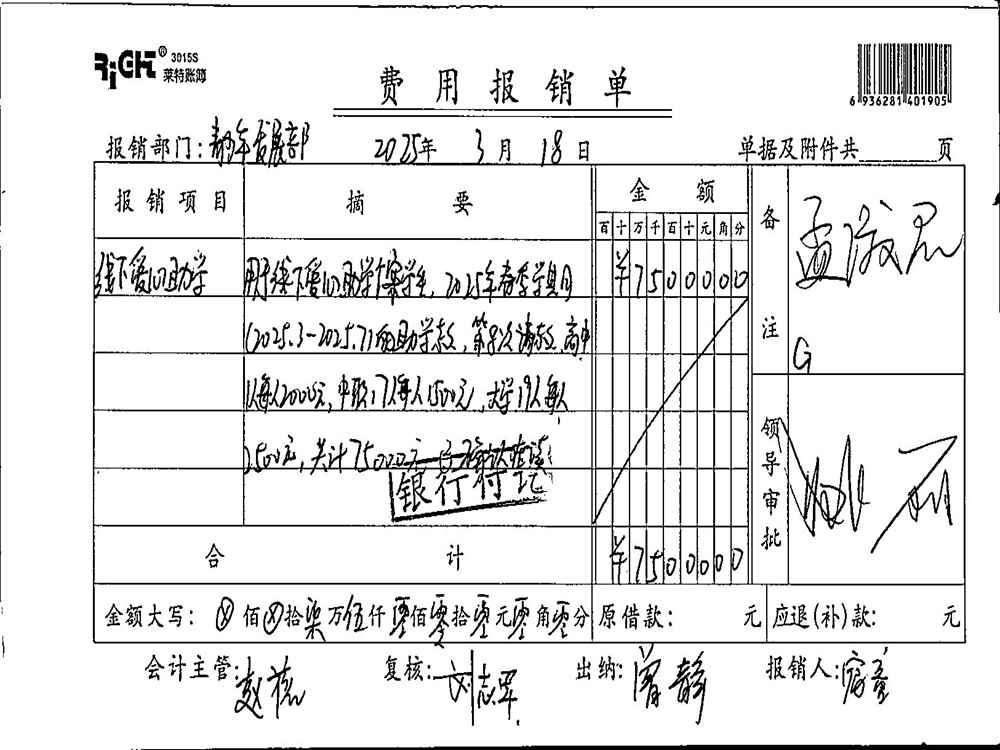 RiGHT® 3015S
莱特账簿
费用报销单
6 936281 401905
报销部门：青年发展部 2025年 3月 18日 单据及附件共 页
报销项目 摘要 金额 备注
百十万千百十元角分
线下爱心助学 用于线下爱心助学 学生，2025年春季学期 ¥7500000
(2025.3-2025.7)的助学款，第8次请款，高中
1人每人2000元，中职17人每人1500元，大学19人每人
2500元，共计75000元
银行付讫
G
领导审批
合计 ¥7500000
金额大写：ⓧ佰ⓧ拾柒万伍仟零佰零拾零元零角零分 原借款： 元 应退(补)款： 元
会计主管： 复核：刘志军 出纳：曾静 报销人：